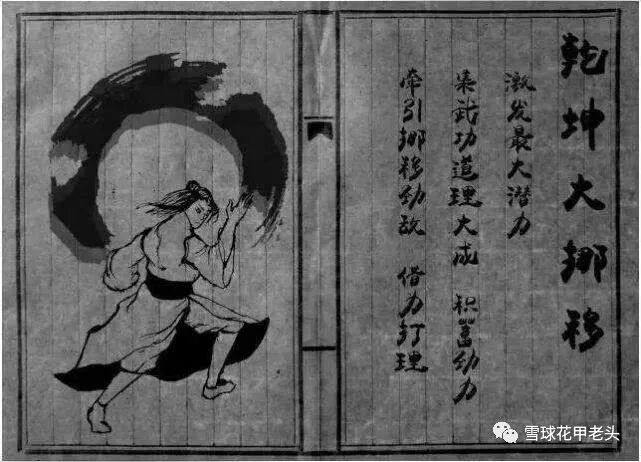 乾坤大挪移
激发最大潜力
集武功道理大成 积蓄劲力
牵引挪移劲敌 借力打理
雪球花甲老头